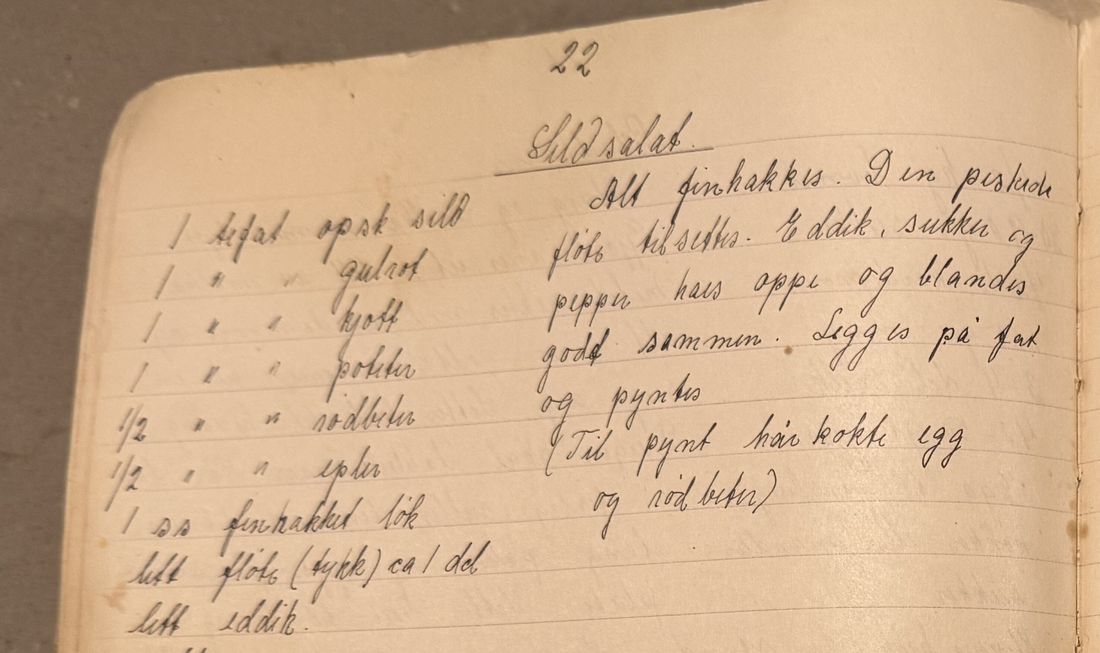 22
Sild salat.
1 tefat opsk sild
1 " " gulrot
1 " " kjøtt
1 " " poteter
1/2 " " rødbeter
1/2 " " epler
1 ss finhakket løk
litt fløte (tykk) ca 1 del
litt eddik.
Alt finhakkes. Den piskede
fløte tilsettes. Eddik, sukker og
pepper haes oppi og blandes
godt sammen. Legges på fat
og pyntes
(Til pynt hår kokte egg
og rødbeter)